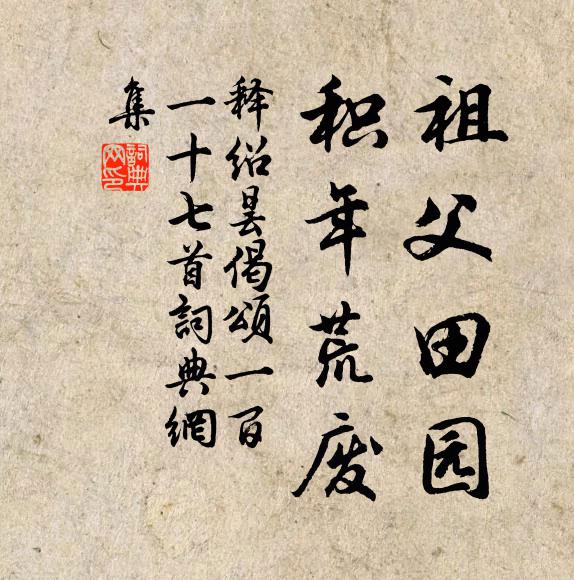 祖父田园
积年荒废
释绍昙偈頌一百
一十七首詞典網
集
詞典网印